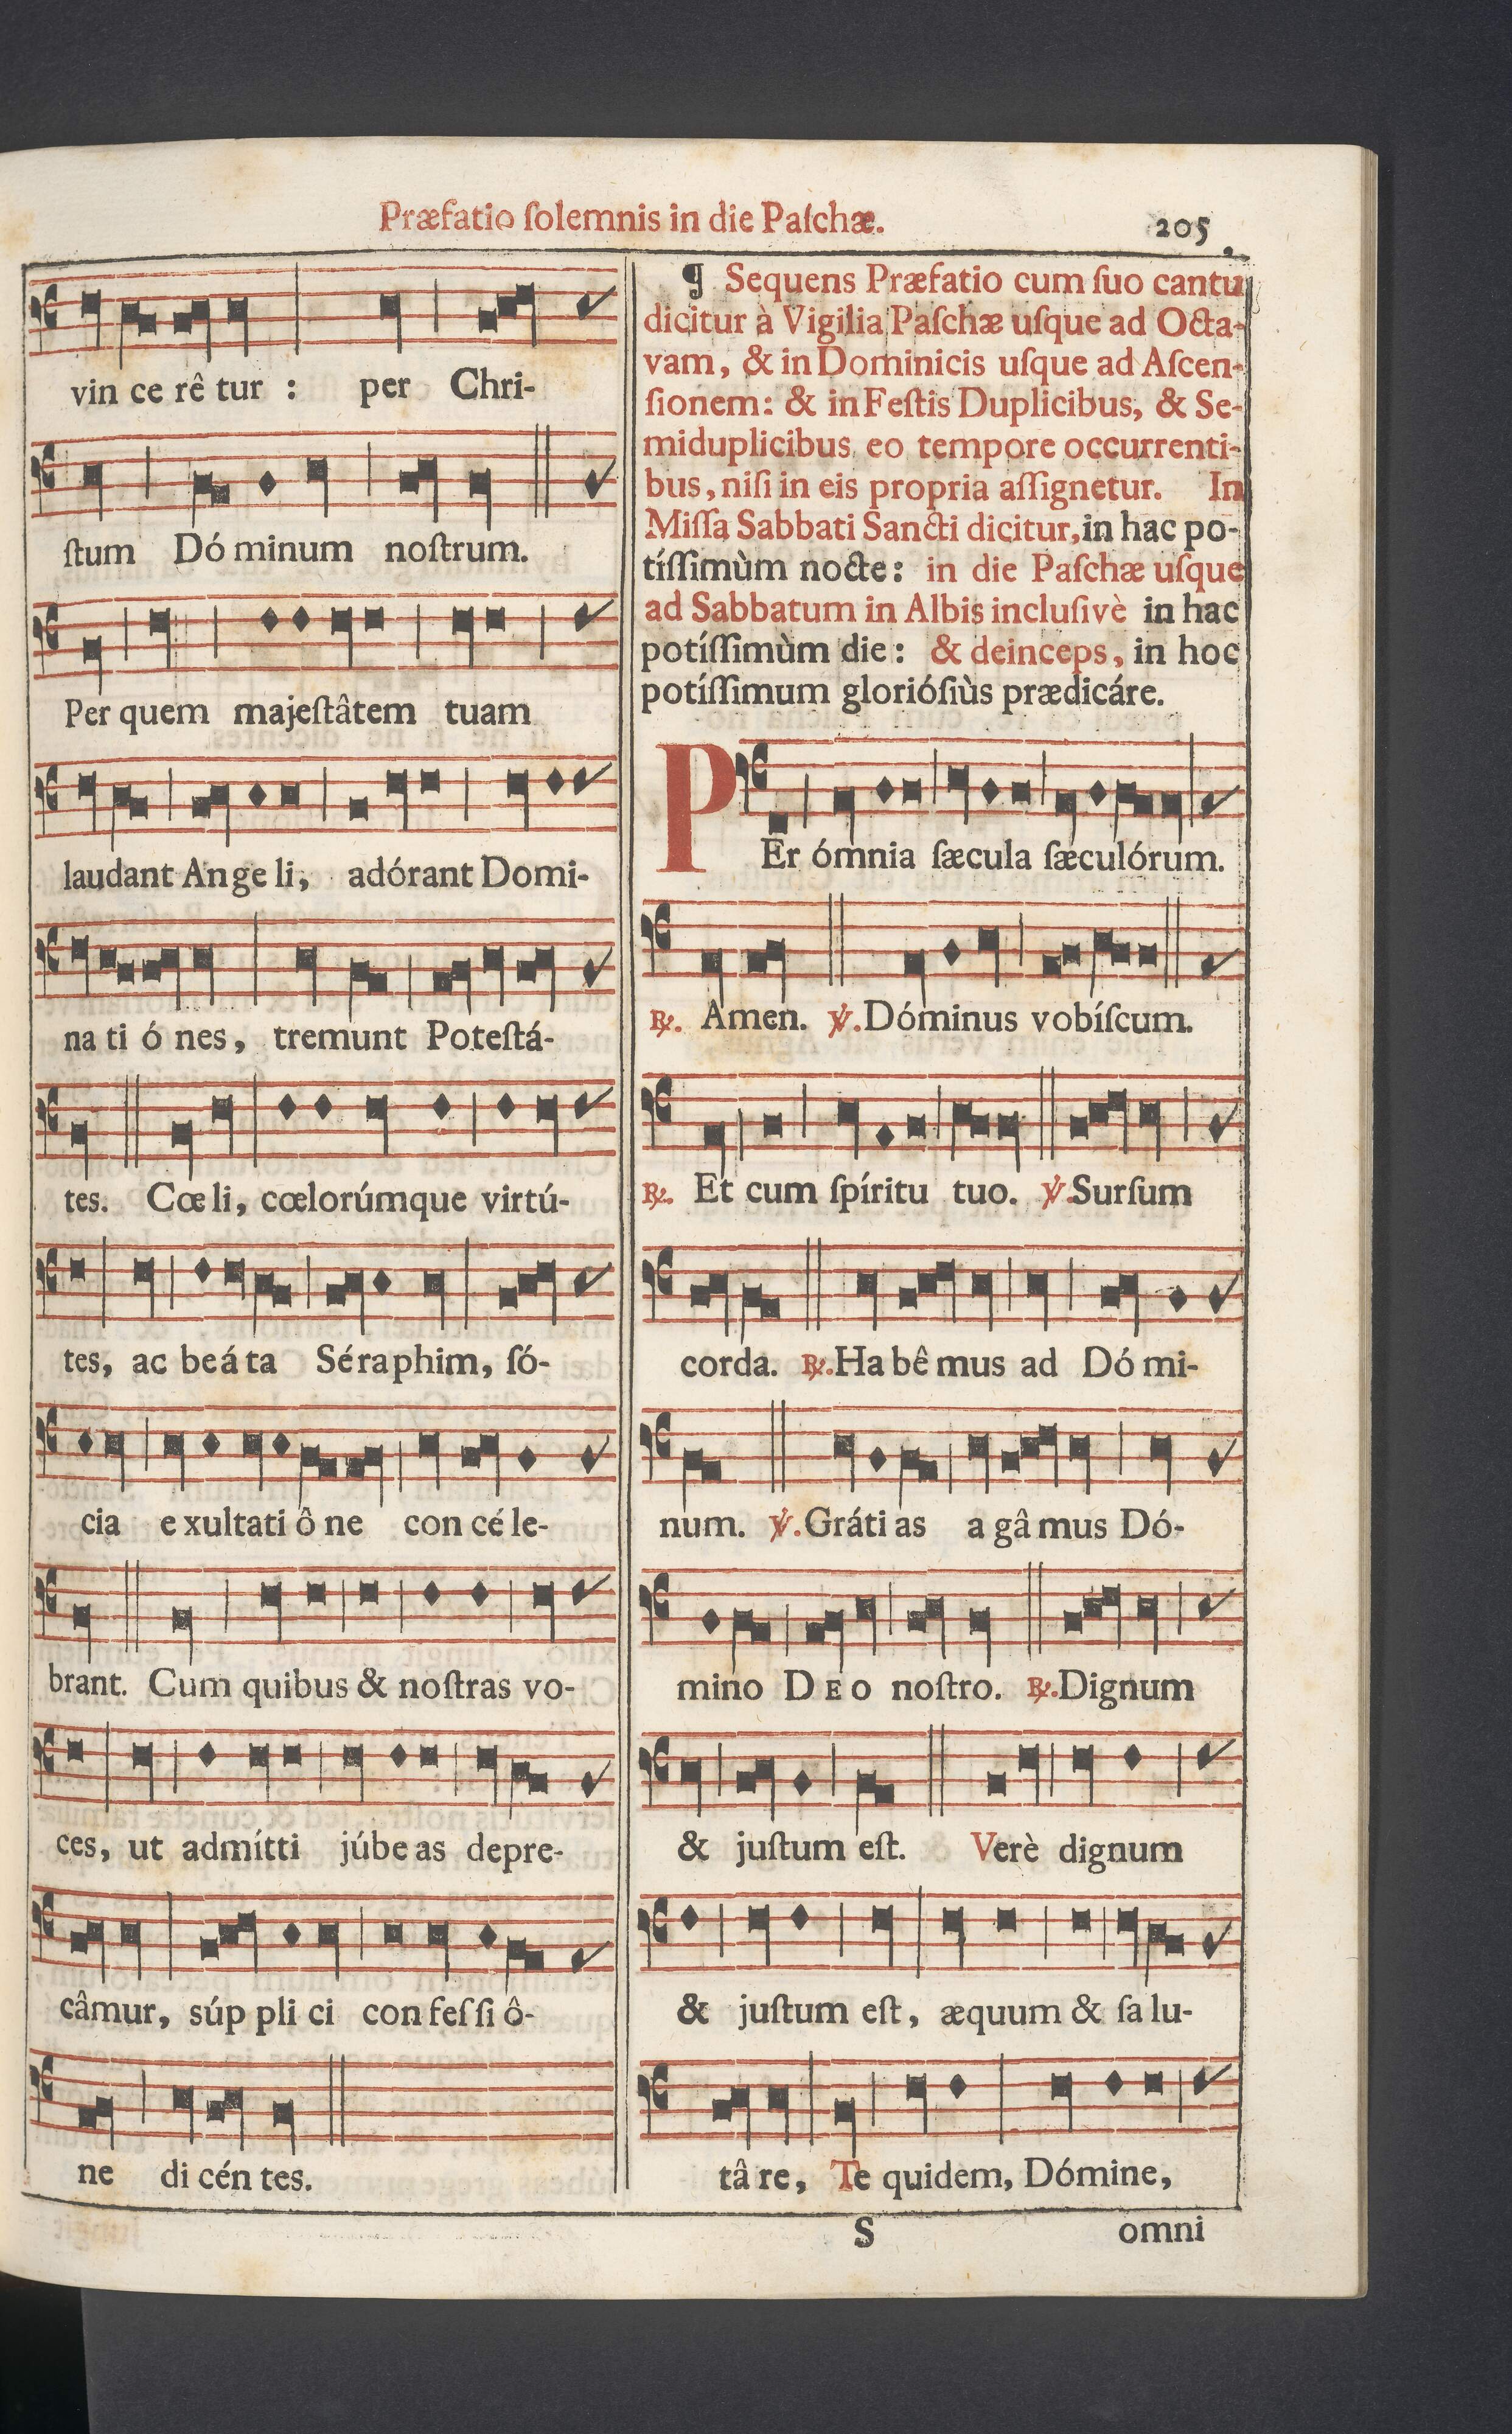 Præfatio ſolemnis in die Paſchæ. 205
vin ce rê tur : per Chri-
ſtum Dó minum noſtrum.
Per quem majeſtâtem tuam
laudant An ge li, adórant Domi-
na ti ó nes, tremunt Poteſtá-
tes. Cœ li, cœlorúmque virtú-
tes, ac beá ta Sé raphim, ſó-
cia e xultati ô ne con cé le-
brant. Cum quibus & noſtras vo-
ces, ut admítti júbe as depre-
câmur, súp pli ci con feſ ſi ô-
ne di cén tes.
¶ Sequens Præfatio cum ſuo cantu
dicitur à Vigilia Paſchæ uſque ad Octa-
vam, & in Dominicis uſque ad Aſcen-
ſionem: & in Feſtis Duplicibus, & Se-
miduplicibus eo tempore occurrenti-
bus, niſi in eis propria aſſignetur. In
Miſſa Sabbati Sancti dicitur, in hac po-
tíſſimùm nocte: in die Paſchæ uſque
ad Sabbatum in Albis incluſivè in hac
potíſſimùm die: & deinceps, in hoc
potíſſimum glorióſiùs prædicáre.
PEr ómnia ſæcula ſæculórum.
℟. Amen. ℣. Dóminus vobíſcum.
℟. Et cum ſpíritu tuo. ℣. Surſum
corda. ℟. Ha bê mus ad Dó mi-
num. ℣. Gráti as a gâ mus Dó-
mino DEO noſtro. ℟. Dignum
& juſtum eſt. Verè dignum
& juſtum eſt, æquum & ſa lu-
tâ re, Te quidem, Dómine,
S omni